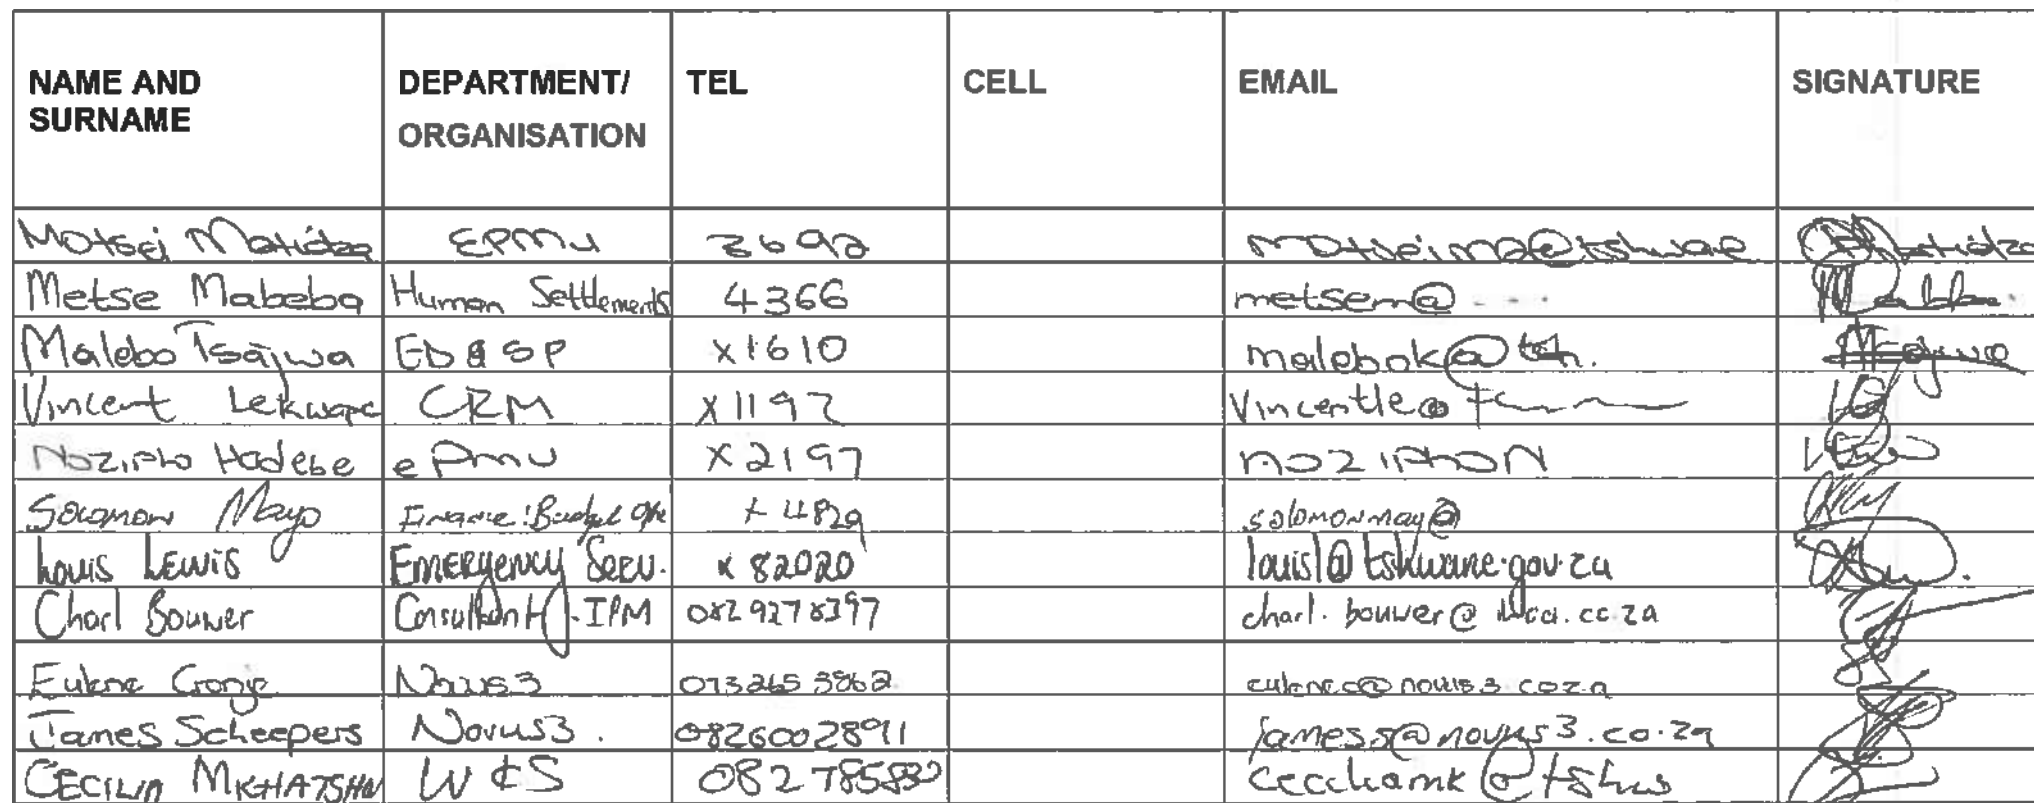 NAME AND SURNAME DEPARTMENT/ ORGANISATION TEL CELL EMAIL SIGNATURE
Motsei Matidza EPMU 3692 motseima@tshwae
Metse Mabeba Human Settlements 4366 metsem@
Malebo Tsajwa ED&SP x1610 malebok@tsh.
Vincent Lekwape CRM X1197 Vincentle@
Nozipho Hadebe ePmu X2197 noziphoN
Solomon Mayo Finance: Budget Office x4829 solomonmay@
Louis Lewis Emergency Serv. x82020 louisl@tshwane.gov.za
Charl Bouwer Consultant - IPM 0829278397 charl.bouwer@
Eulene Cronje Novus3 0732653862 eulenec@novus3.co.za
James Scheepers Novus3. 0826002891 jamess@novus3.co.za
CECILIA W&S 082